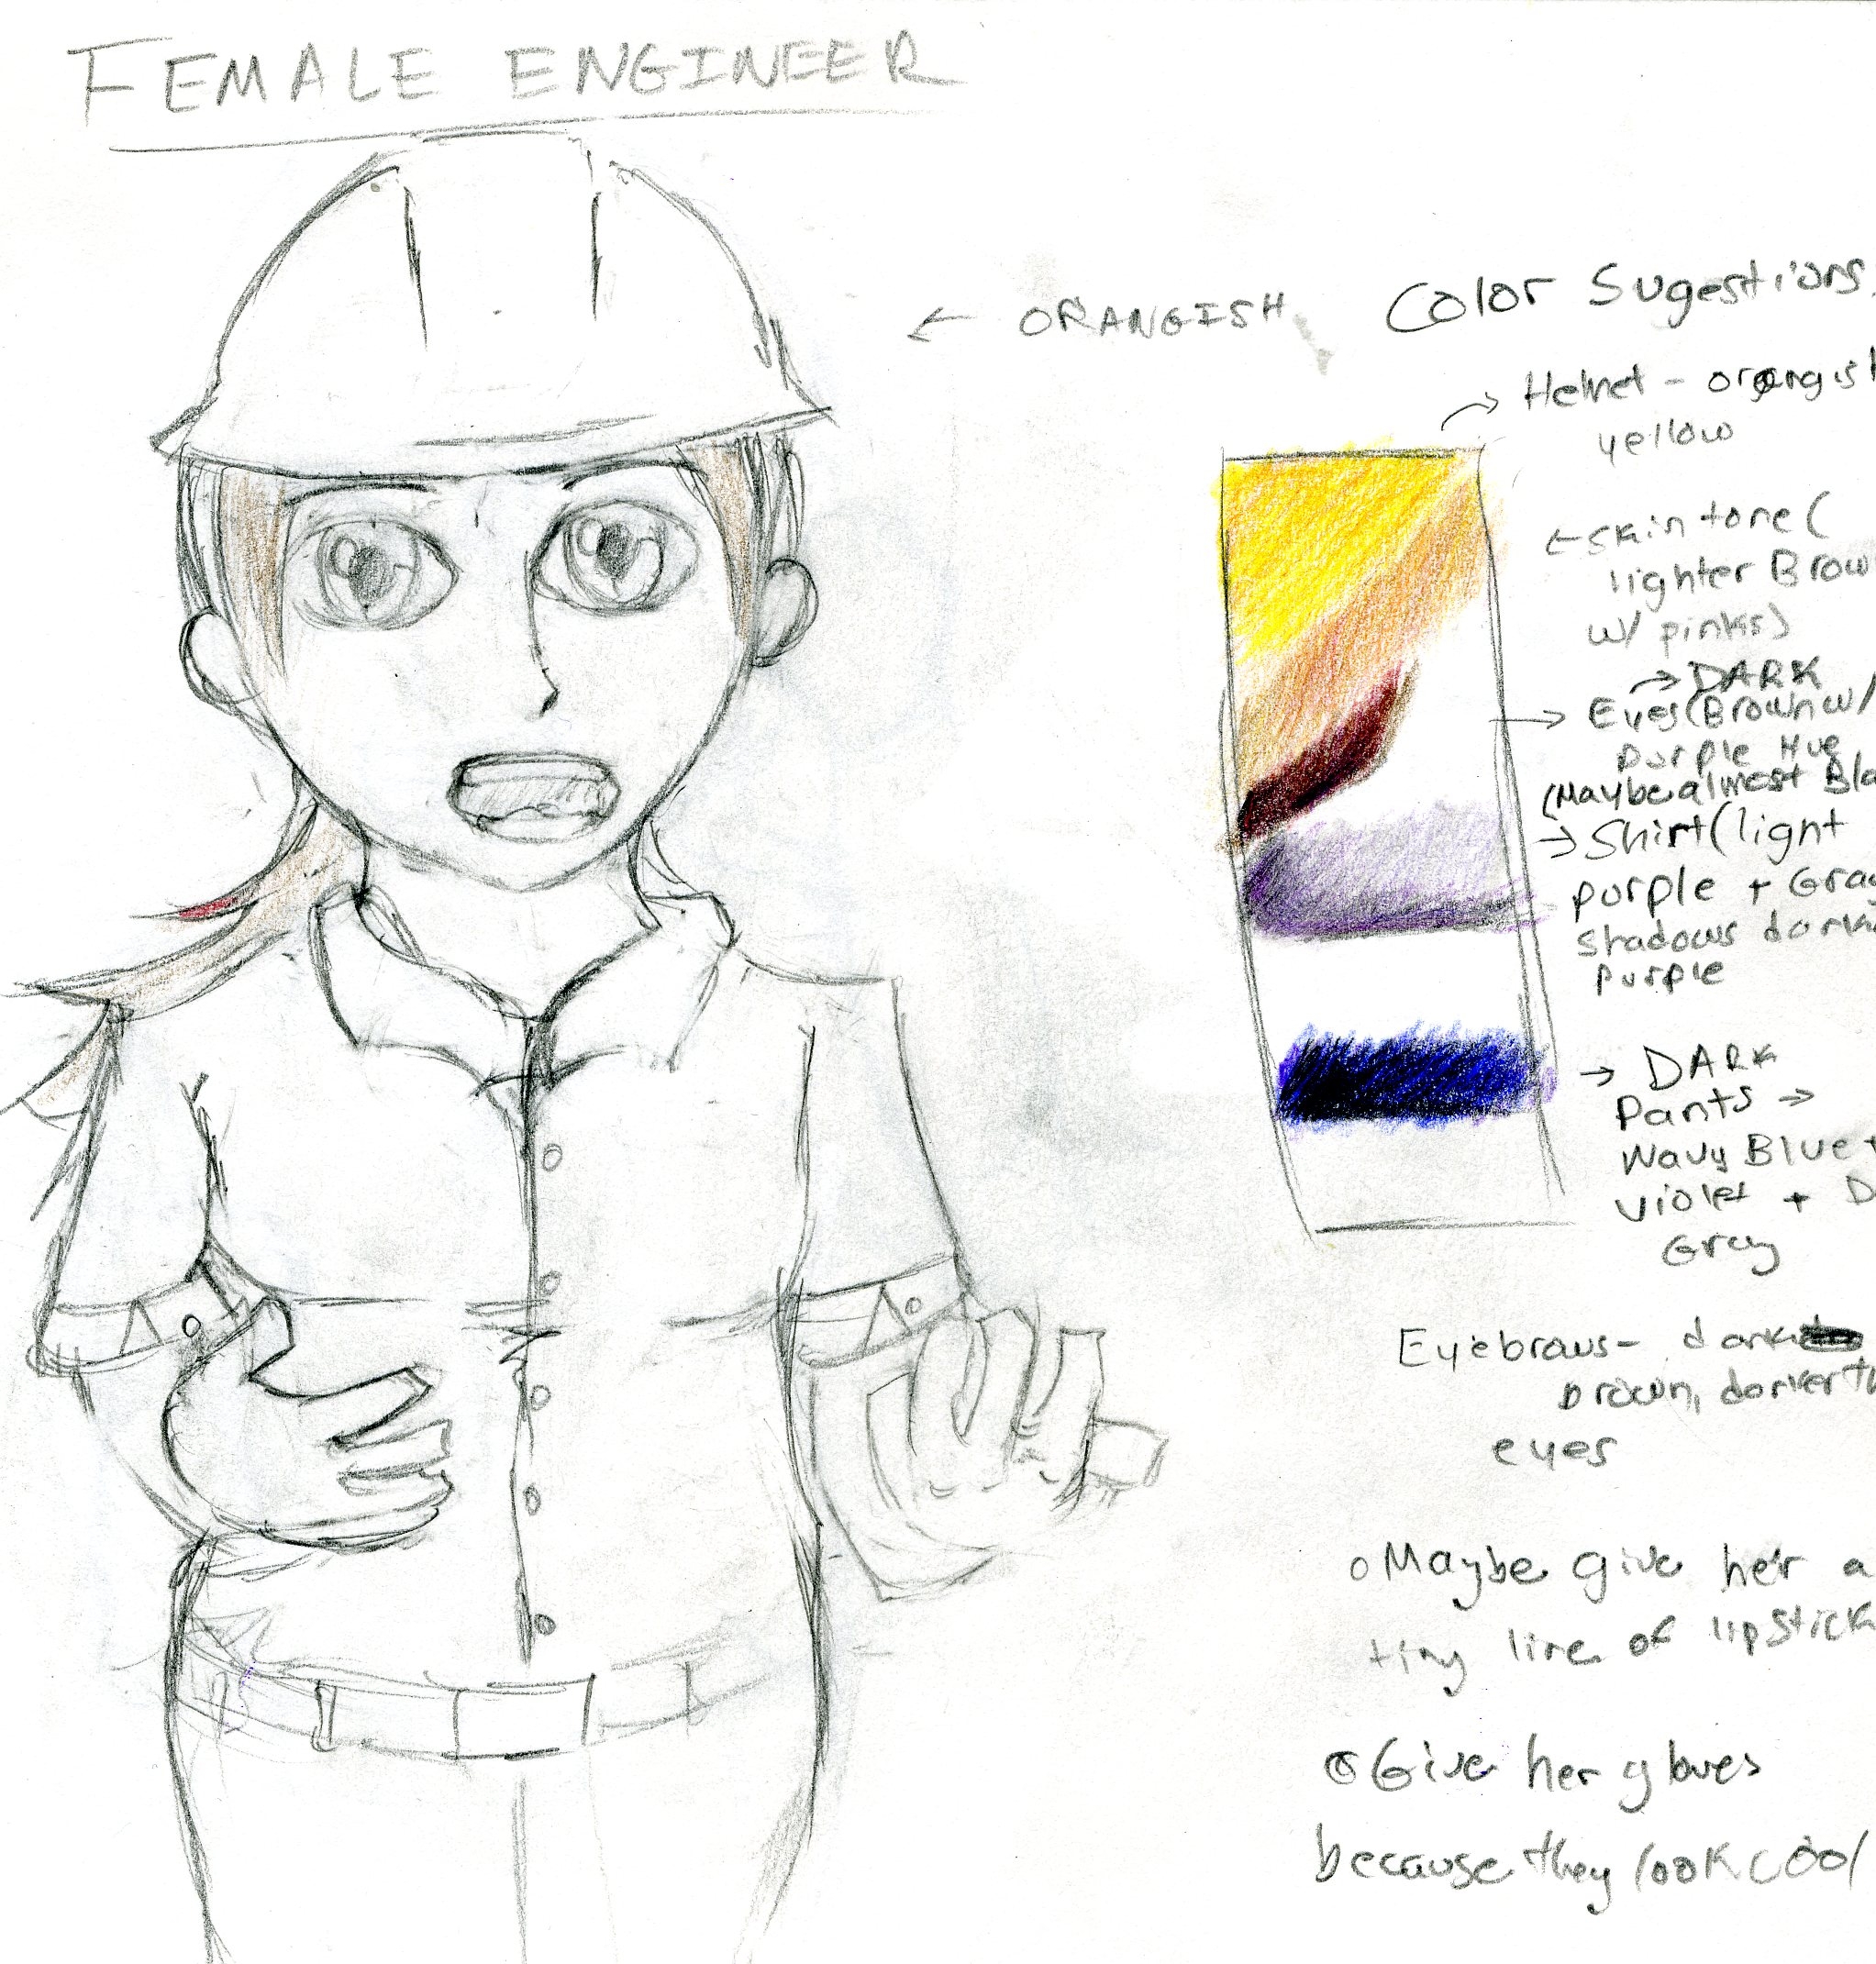 FEMALE ENGINEER
← ORANGISH
Color Sugestions
Helmet - orangish
yellow
←skin tone (
lighter Brow
w/ pinks)
→ DARK
→ Eyes (Brown w/
purple Hue
(Maybe almost Bla
→ Shirt (light
purple + Gray
shadows dark
purple
→ DARK
Pants →
Navy Blue +
violet + D
Gray
Eyebrows - dark
brown, darker th
eyes
o Maybe give her a
tiny line of lipstick
o Give her gloves
because they look cool